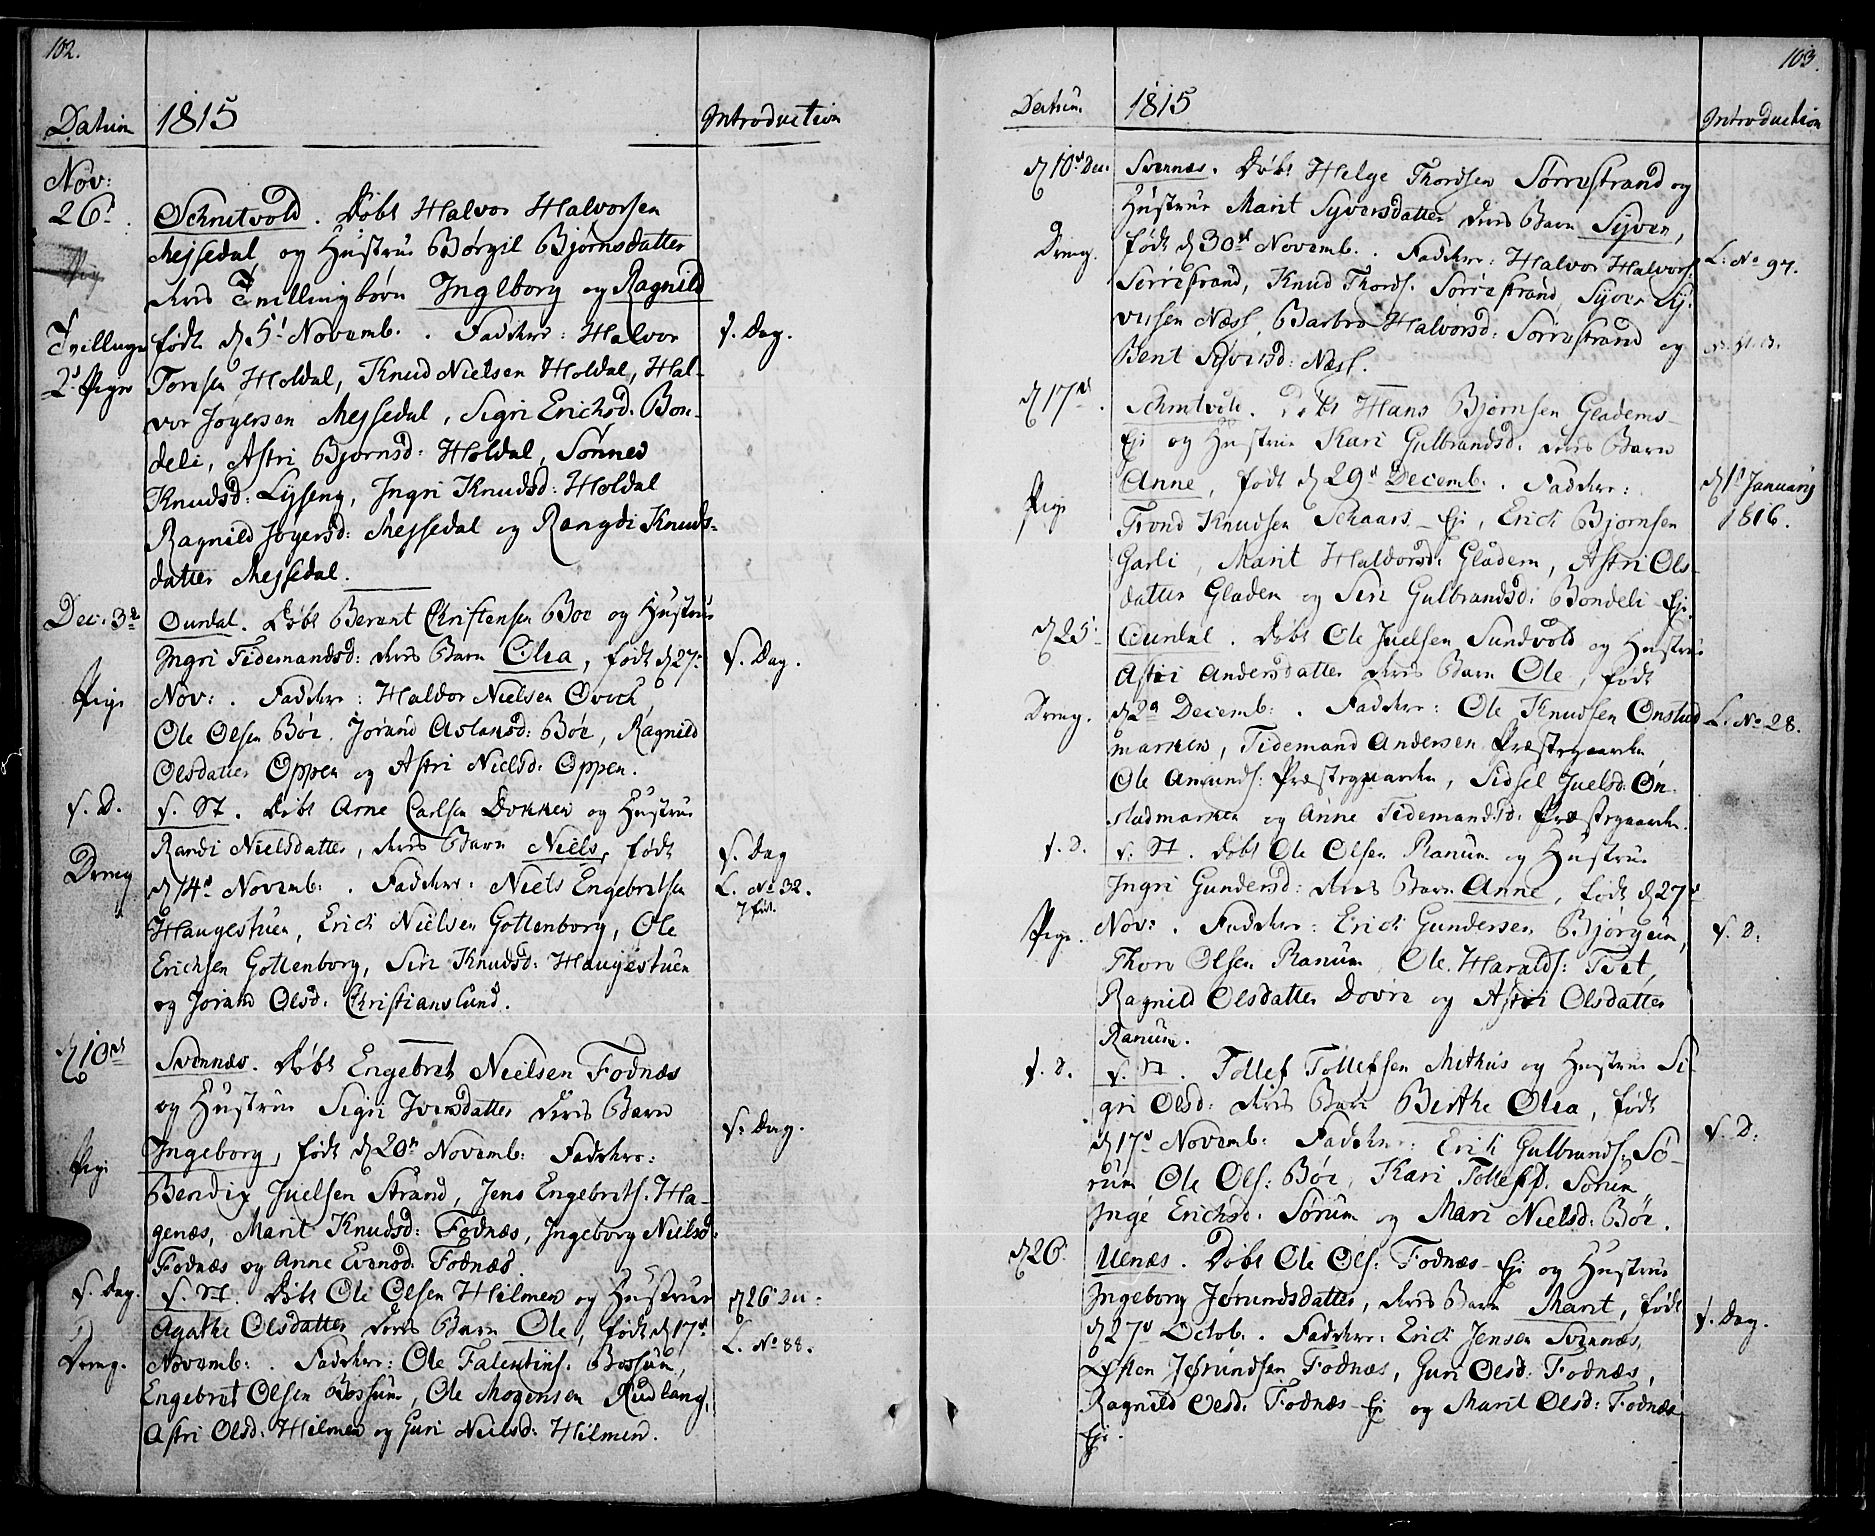 102.
Datum 1815 Introduction
Nov:
26. Schrutvold. Døbt Halvor Halvorsen
Mejsedal og Hustrue Børgil Bjørnsdatter
deres Tvillingbørn Ingleborg og Ragnild
Tvillinger født d 5t Novemb: . Faddere: Halvor s. Dag.
2de Piger Toresen Holdal, Knud Nielsen Holdal, Hal-
vor Jøgersen Mejsedal, Sigri Erichsd: Bon-
deli, Astri Bjørnsd: Holdal, Sønnev
Knudsd: Lysseng, Ingri Knudsd: Holdal
Ragnild Jøgersd: Mejsedal og Rangdi Knuds-
datter Mejsedal.
Dec: 3d Ourdal. Døbt Berent Christensen Boe og Hustrue
Ingri Tidemandsd: deres Barn Olea, født d 27: s. Dag.
Pige Nov: . Faddere: Haldor Nielsen Qvich,
Ole Olsen Bøe. Jørand Aslaksd: Bøe, Ragnild
Olsdatter Oppen og Astri Nielsd: Oppen.
s. D. s. St. Døbt Arne Carlsen Dokken og Hustrue
Randi Nielsdatter, deres Barn Niels, født s. Dag
Dreng d 14d Novemb: . Faddere: Niels Engebretsen L. No 32.
Haugestuen, Erich Nielsen Gottenborg, Ole
Erichsen Gottenborg, Siri Knudsd: Haugestuen
og Jorand Olsd: Christianslund.
d 10de Svennæs. Døbt Engebret Nielsen Fodnæs
og Hustrue Sigri Iversdatter deres Barn s. Dag.
Pige Ingeborg, født d 20n Novemb: Faddere:
Bendix Juelsen Strand, Jens Engebrets: Ha-
genæs, Marit Knudsd: Fodnæs, Ingeborg Nielsd:
Fodnæs og Anne Evensd: Fodnæs.
s. Dag. s. St. Døbt Ole Olsen Hilmen og Hustrue d 26 De:
Agathe Olsdatter deres Barn Ole, født d 17d
Dreng. Novemb: . Faddere: Ole Falentins: Bossum, L. No 88.
Engebret Olsen Bossum, Ole Mogensen Rudlang,
Astri Olsd: Hilmen og Guri Nielsd: Hilmen.
103.
Datum 1815 Introduction
d 10d Dec: Svennæs. Døbt Helge Thordsen Sørrestrand og
Hustrue Marit Syversdatter deres Barn Syver,
Dreng. født d 30d Novemb. . Faddere: Halvor Halvors: L. No 97.
Sørrestrand, Knud Thords: Sørrestrand, Syver Sy-
versen Næss, Barbro Halvorsd: Sørrestrand og
Bent Syversd: Næss.
d 17d. Schrutvol. Døbt Hans Bjørnsen Gladems-
Eje og Hustrue Kari Gulbrandsd: deres Barn
Pige Anne, født d 29d Decemb. . Faddere: d 1t January
Trond Knudsen Schaars-Eje, Erich Bjørnsen 1816.
Garli, Marit Haldorsd: Gladem, Astri Ols-
datter Gladem og Siri Gulbrandsd: Bondeli Eje.
d 25. Ourdal. Døbt Ole Juelsen Sundvold og Hustrue
Astri Andersdatter deres Barn Ole, født
Dreng. d 2n Decemb: . Faddere: Ole Knudsen Onstad L. No 28.
marken, Tidemand Andersen Præstegaarden
Ole Amunds: Præstegaarden, Sidsel Juelsd: On-
stadmarken og Anne Tidemandsd: Præstegaarden.
s. D. s. St. Døbt Ole Olsen Ranum og Hustrue
Ingri Gundersd: deres Barn Anne, født d 27d
Pige. Nov: . Faddere: Erich Gundersen Bjørgum, s. D:
Thore Olsen Ranum, Ole Haralds: Tvet,
Ragnild Olsdatter Dovre og Astri Olsdatter
Ranum.
s. D. s. St. Tollef Tollefsen Methus og Hustrue Si-
gri Olsd: deres Barn Berthe Olea, født
d 17d Novemb: Faddere: Erik Gulbrands: Sø- s. D:
rum Ole Ols: Bøe, Kari Tollefsd. Sørum
Inge Erichsd: Sørum og Mari Nielsd: Bøe.
d 26. Uenæs. Døbt Ole Ols: Fodnæs-Eje og Hustrue
Ingeborg Jørundsdatter, deres Barn Marit, født
d 27d Octob. . Faddere: Erich Jensen Svennæs, s. Dag.
Østen Jørundsen Fodnæs, Guri Olsd: Fodnæs,
Ragnild Olsd: Fodnæs-Eje og Marit Olsd: Fodnæs
Eje.